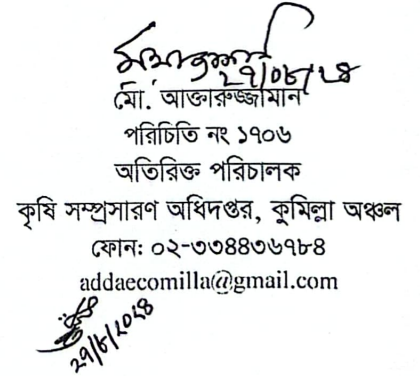 ২৭/০৮/২৪
মো. আক্তারুজ্জামান
পরিচিতি নং ১৭০৬
অতিরিক্ত পরিচালক
কৃষি সম্প্রসারণ অধিদপ্তর, কুমিল্লা অঞ্চল
ফোন: ০২-৩৩৪৪৩৬৭৮৪
addaecomilla@gmail.com
২৭/৮/২০২৪